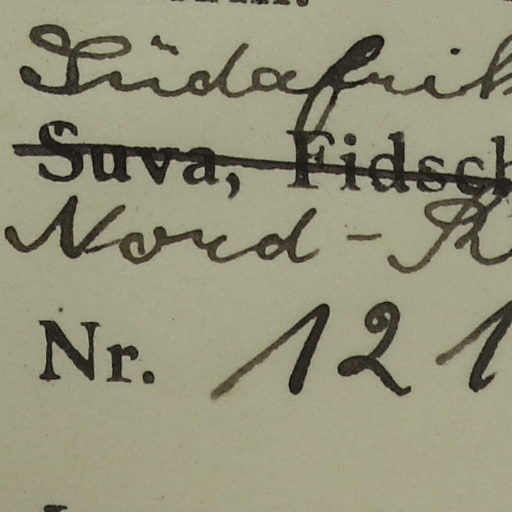 Südafrik
Suva, Fidsch
Nord-R
Nr. 121